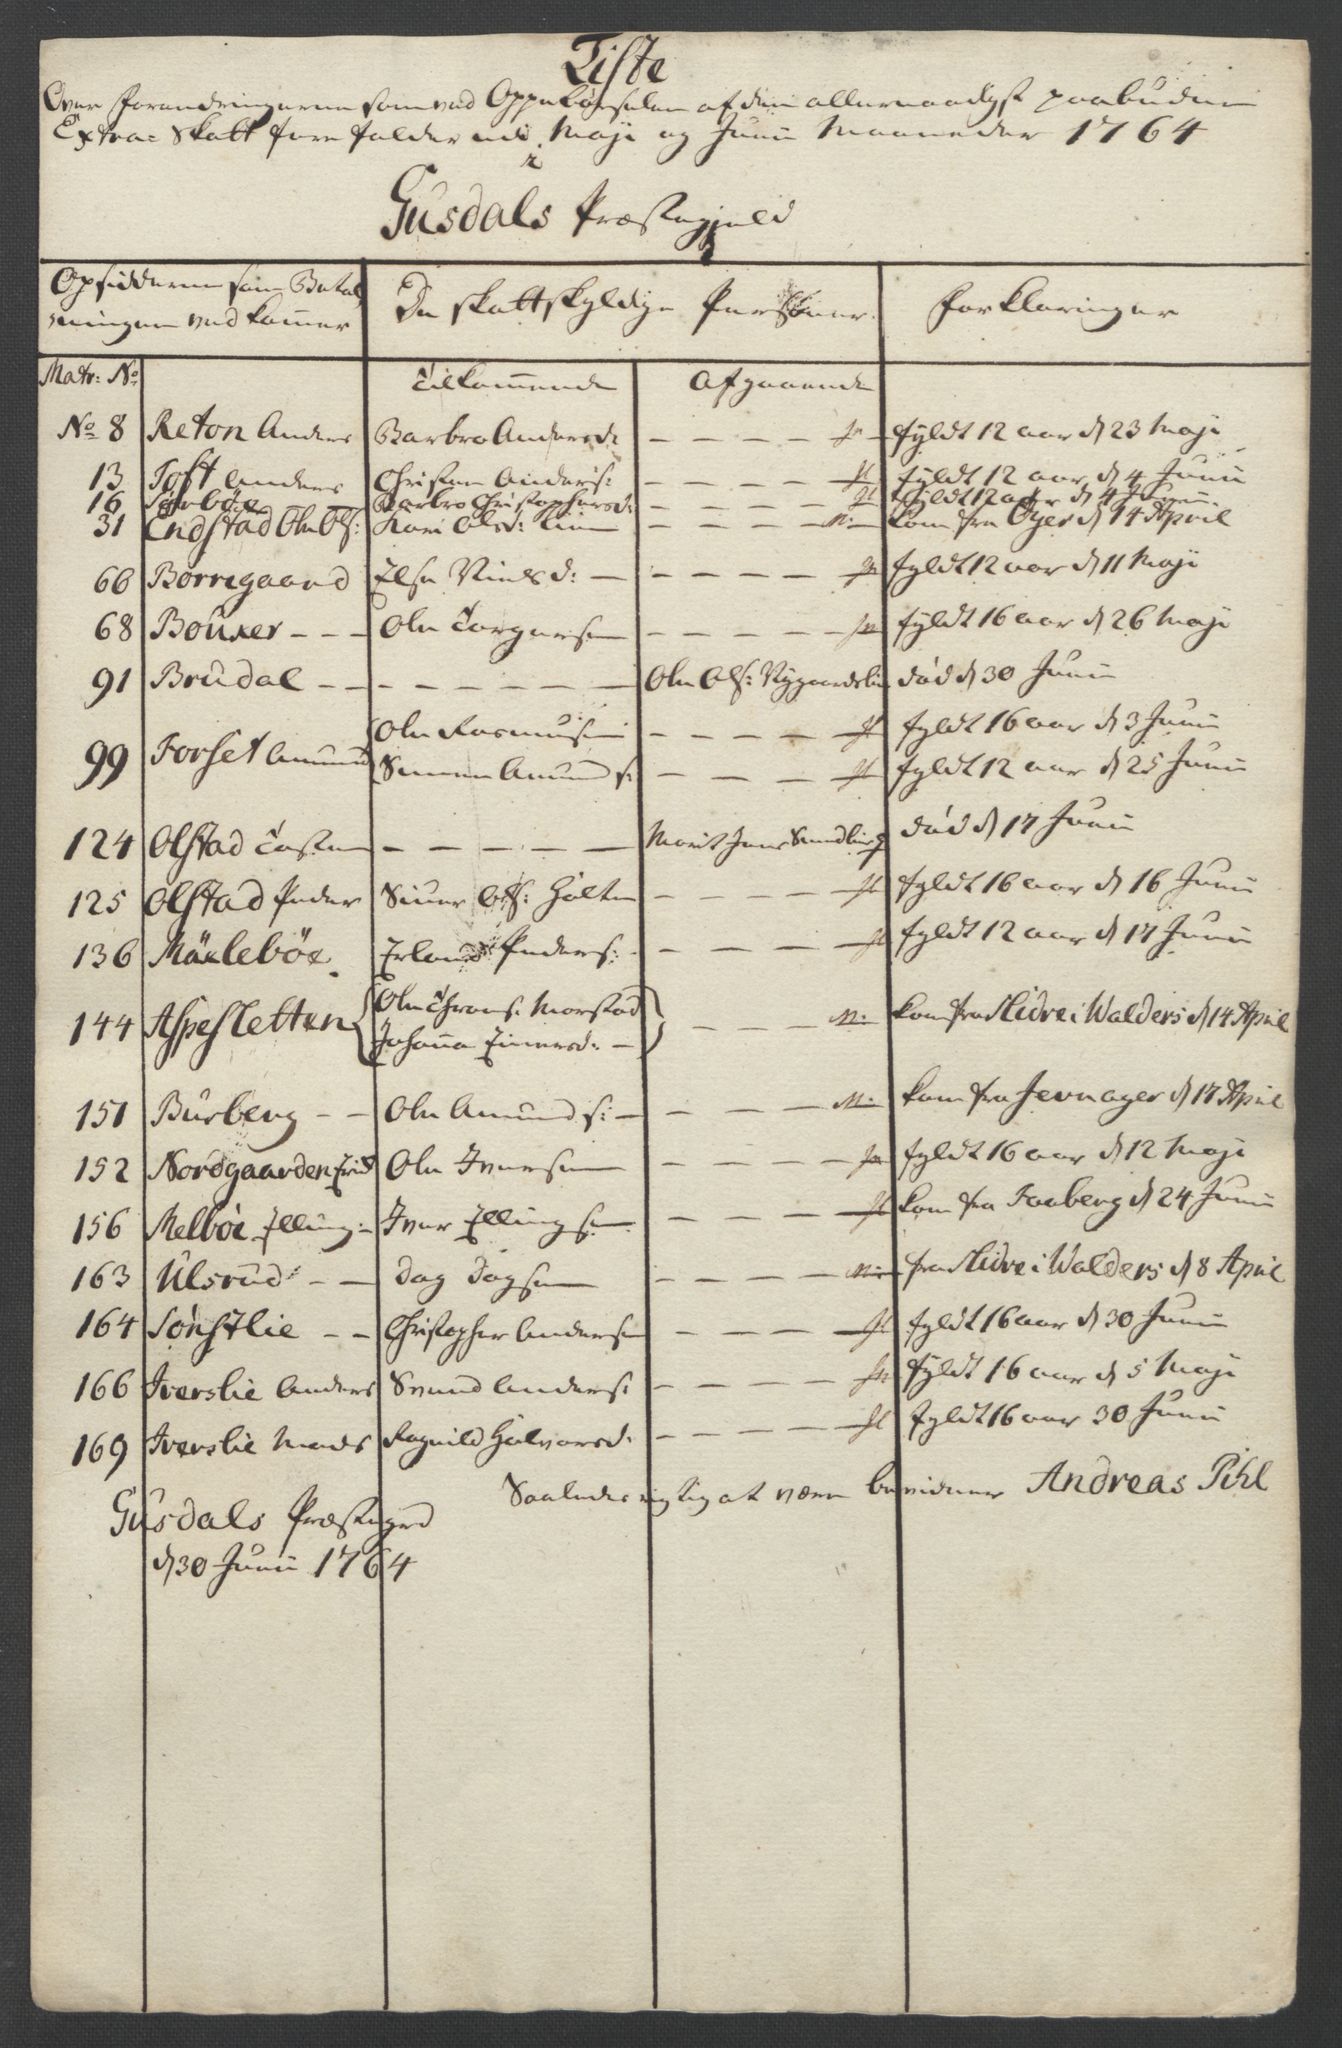 Liste
Over forandringerne som ved Oppebørselen af den allernaadigst paabudene
Extra- Skatt fore falder udi Maji og Junii Maaneder 1764
i
Gusdals Præstegield
Opsidderne som Betal
ningen vedkommer
De skattskyldige Personer
Forklaringer
Matr: No
Tilkommende
Afgaaende
No 8 Reton Anders Barbro Andersd: - - - - fyldt 12 aar d 23 Maji
13 Toft Anders Christen Anders: - - - - fyldt 12 aar d 4 Junii
16 Sørbøe Barbro Christophersd: - - - - fyldt 12 aar d 4 Junii
31 Endstad Ole Ols: Kari Olsd: - - - - M: kom fra Øyer d 14 April
66 Borregaard Else Nielsd: - - - - - fyldt 12 aar d 11 Maji
68 Bouxer - - - Ole Torgersen - - - - fyldt 16 aar d 26 Maji
91 Brudal - - - - - - - - Ole Ols: Nygaardslie død d 30 Junii
99 Forset Amund { Ole Rasmusen - - - - fyldt 16 aar d 3 Junii
Simen Amunds: - - - - fyldt 12 aar d 25 Junii
124 Olstad Tosten - - - - - Marit Jens død d 17 Junii
125 Olstad Peder Siver Ols: Holte - - - - fyldt 16 aar d 16 Junii
136 Mäelebøe Erland Peders: - - - - fyldt 12 aar d 17 Junii
144 Aspesletten { Ole Throns: Morstad
Johanna Einersd: - } - - - M: kom fra Slidre i Walders d 14 April
151 Burberg - - Ole Amunds: - - - - M: kom fra Jevnager d 17 April
152 Nordgaarden Ole Iversen - - - - fyldt 16 aar d 12 Maji
156 Melbøe Elling - Iver Ellingsen - - - - kom fra Faaberg d 24 Junii
163 Ulsrud - - Dag Dagsen - - - - M: fra Slidre i Walders d 8 April
164 Sønstlie - - Christopher Andersen - - - - fyldt 16 aar d 30 Junii
166 Iverslie Anders Svend Anders: - - - - fyldt 16 aar d 5 Maji
169 Iverslie Mads Ragnild Halvorsd: - - - - fyldt 16 aar 30 Junii
Saaledes rigtig at være bevidner Andreas Pihl
Gusdals Præstegrd
d 30 Junii 1764